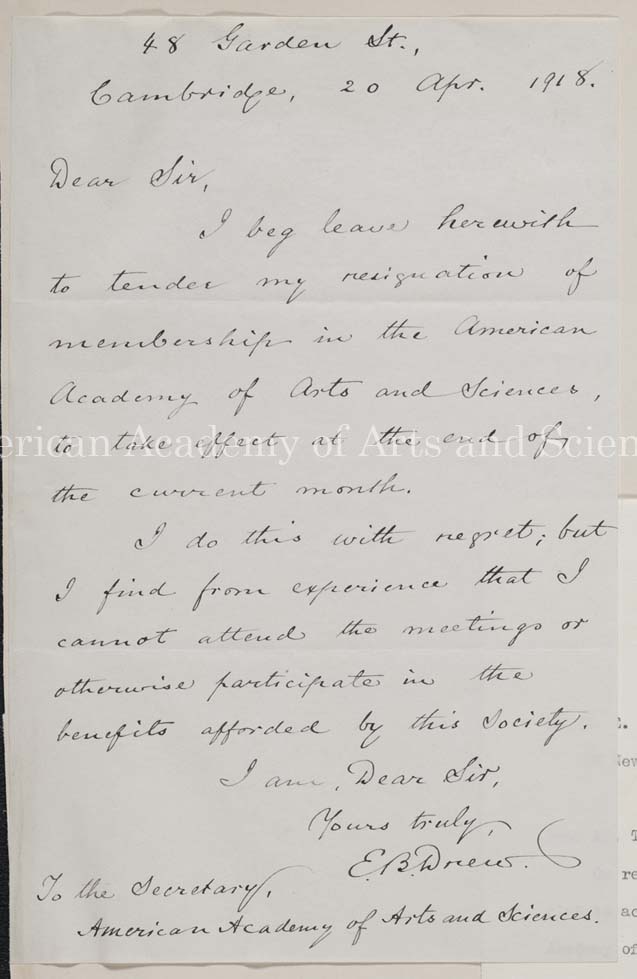 48 Garden St.,
Cambridge, 20 Apr. 1918.
Dear Sir,
I beg leave herewith
to tender my resignation of
membership in the American
Academy of Arts and Sciences,
to take effect at the end of
the current month.
I do this with regret; but
I find from experience that I
cannot attend the meetings or
otherwise participate in the
benefits afforded by this Society.
I am, Dear Sir,
Yours truly,
E. B. Drew.
To the Secretary,
American Academy of Arts and Sciences.
erican Academy of Arts and Scien